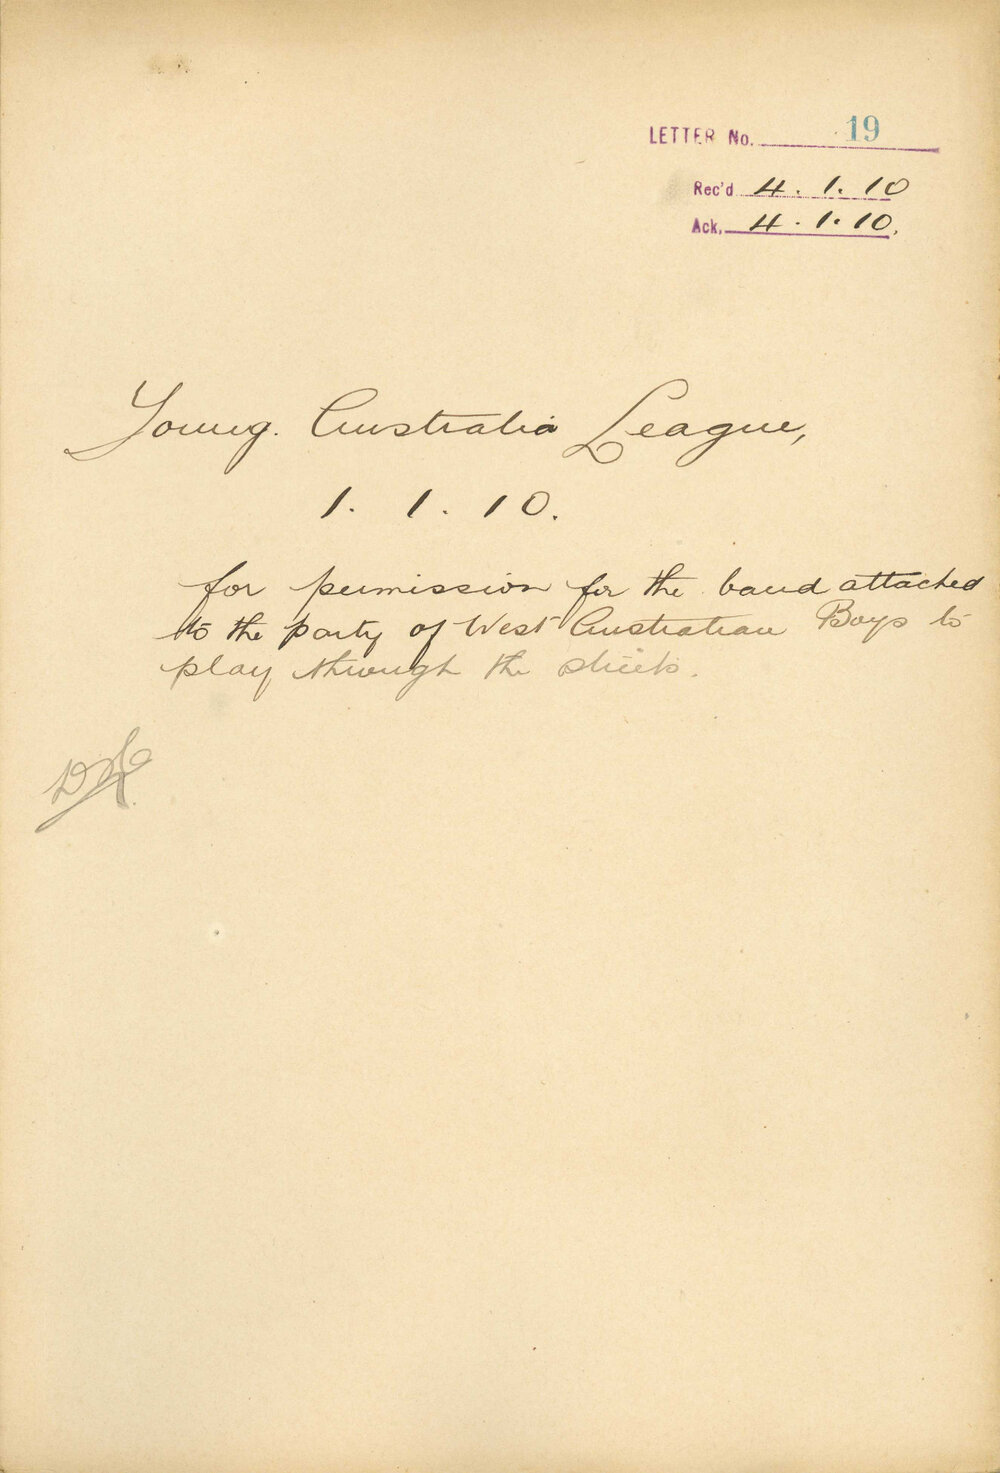 LETTER No. 19
Rec'd 4.1.10
Ack. 4.1.10.
Young. Australia League,
1. 1. 10.
for permission for the band attached
to the party of West Australian Boys to
play through the streets.